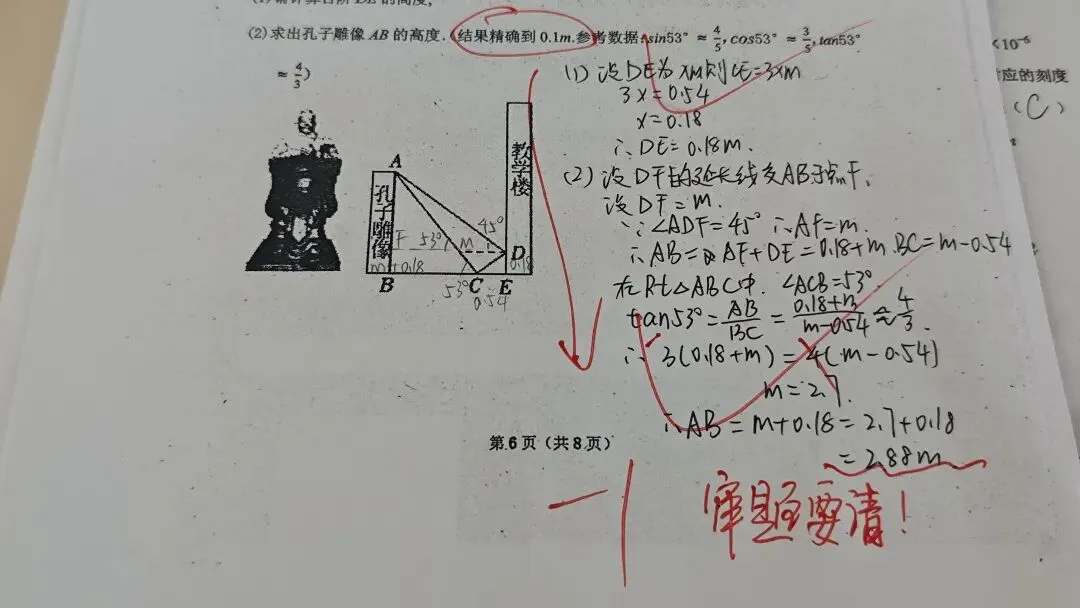 (1)请计算台阶DE的高度;
(2)求出孔子雕像AB的高度.(结果精确到0.1m.参考数据:sin53°≈4/5,cos53°≈3/5,tan53°
≈4/3)
<10⁻⁶
对应的刻度
(C)
(1)设DE为xm则CE=3xm
3x=0.54
x=0.18
∴DE=0.18m.
(2)设DF的延长线交AB于点F,
设DF=m.
∵∠ADF=45° ∴AF=m.
∴AB=AF+DE=0.18+m.BC=m-0.54
在Rt△ABC中.∠ACB=53°.
tan53°=AB/BC=0.18+m/m-0.54≈4/3.
∴3(0.18+m)=4(m-0.54)
m=2.7.
∴AB=m+0.18=2.7+0.18
=2.88m
A
孔子雕像
教学楼
45°
F 53° M
D
m+0.18
0.18
B
C
E
53°
0.54
第6页(共8页)
-1
审题要清!